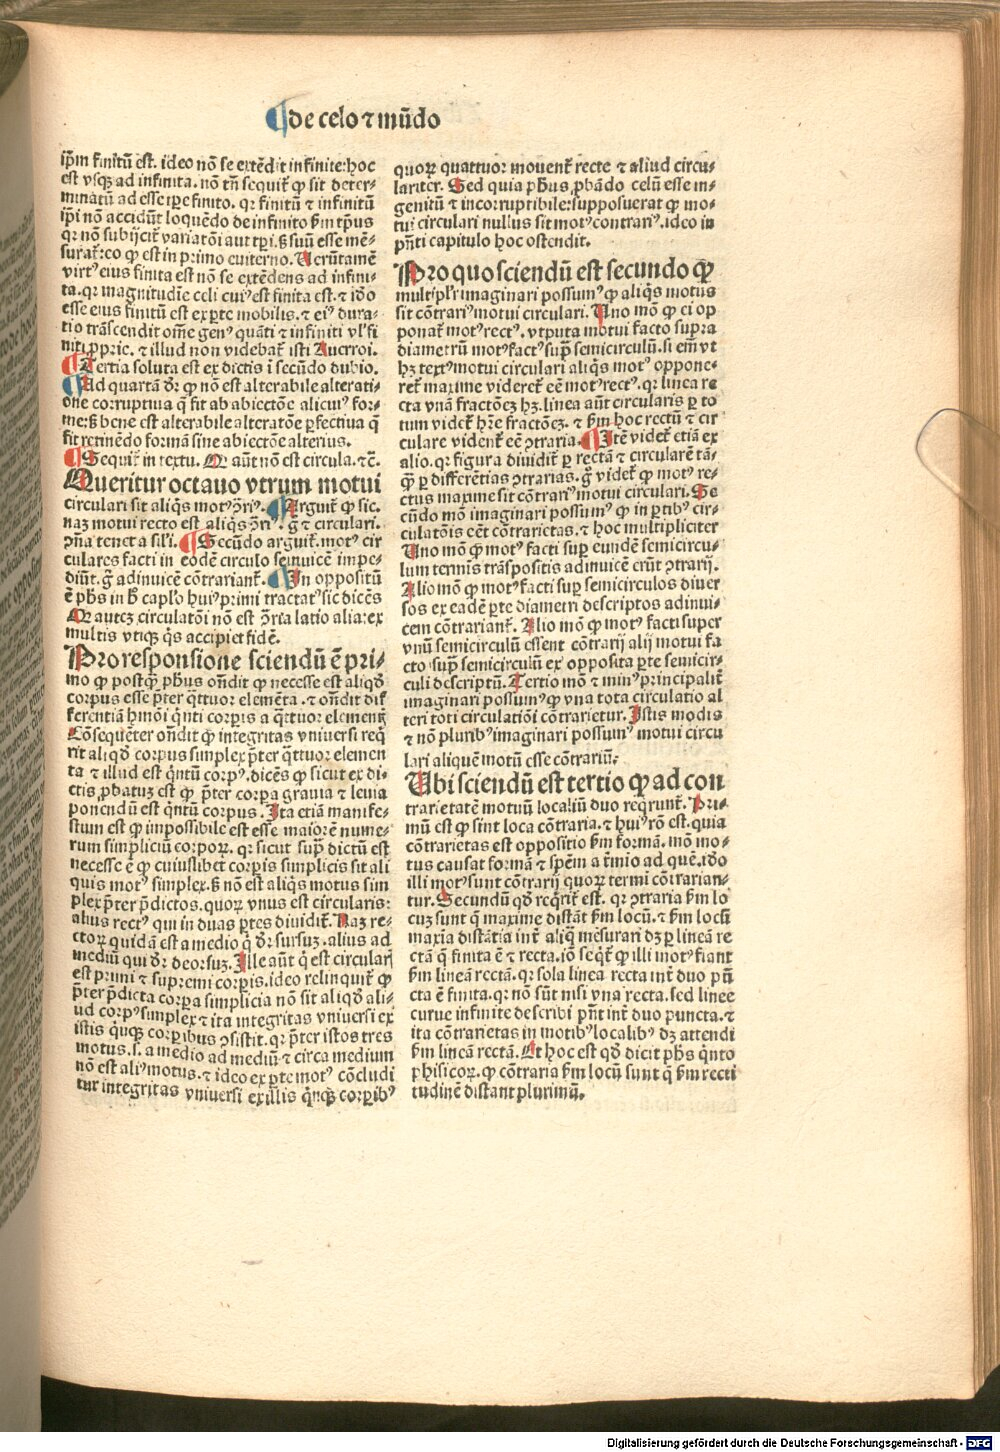 de celo ⁊ mūdo
ip̄m finitū est. ideo nō se extēdit in infinite: hoc
est vsqȝ ad infinita. nō tn̄ sequit̄ ꝙ sit deter-
minatū ad esse ip̄e finito. qr finitū ⁊ infinitū
ip̄i nō accidūt loquēdo de infinito ẜm tp̄us
qr nō subijcit̄ variatōi aut tꝑi. ẜ suū esse mē-
surat̄: eo ꝙ est in primo euiterno. Uerūtamē
virtꝰ eius finita est nō se extēdens ad infini-
ta. qr magnitudīe celi cuiꝰ est finita est. ⁊ iō
esse eius finitū est ex ꝑte mobilis. ⁊ eiꝰ dura-
tio trāscendit om̄e genꝰ quāti ⁊ infiniti vl̓ fi
niti ꝓprie. ⁊ illud non videbat̄ isti Auerroi.
Tertia soluta est ex dictis ī secūdo dubio.
Ad quartā dr̄ ꝙ nō est alterabile alterati-
one corruptiua q̄ fit ab abiectōe alicuiꝰ for-
me: ẜ bene est alterabile alteratōe ꝑfectiua q̄
fit retinēdo formā sine abiectōe alterius.
Sequit̄ in textu. Qr aūt nō est circula. ⁊c̄.
Queritur octauo vtrum motui
circulari sit aliq̄s motꝰ ꝯ̄riꝰ. Arguit̄ ꝙ sic.
naȝ motui recto est aliq̄s ꝯ̄riꝰ. g̊ ⁊ circulari.
ꝯn̄a tenet a sil̓i. Secūdo arguit̄. motꝰ cir
culares facti in eodē circulo seinuicē impe-
diūt. g̊ adinuicē cōtrariant̄. In oppositū
ē ph̄s in h̄ caplo̓ huiꝰ primi tractatꝰ sic dicēs
Qr auteȝ circulatōi nō est ꝯ̄ria latio alia: ex
multis vtiqȝ q̄s accipiet fidē.
Pro responsione sciendū ē pri-
mo ꝙ postq̄ȝ ph̄us on̄dit ꝙ necesse est aliqd̄
corpus esse p̄ter q̄ttuor elemēta. ⁊ on̄dit dif
ferentiā hmōi q̄nti corꝑis a q̄ttuor elementꝭ
Cōsequēter on̄dit ꝙ integritas vniuersi req̄
rit aliqd̄ corpus simplex p̄ter q̄ttuor elemen
ta ⁊ illud est q̄ntū corpꝰ. dicēs ꝙ sicut ex di-
ctis ꝓbatuȝ est ꝙ p̄ter corꝑa grauia ⁊ leuia
ponendū est q̄ntū corpus. Ita etiā manife-
stum est ꝙ impossibile est esse maiorē nume-
rum simpliciū corpoꝝ. qr sicut sup̄ dictū est
necesse ē ꝙ cuiuslibet corꝑis simplicis sit ali
quis motꝰ simplex. ẜ nō est aliq̄s motus sim
plex p̄ter p̄dictos. quoꝝ vnus est circularis:
alius rectꝰ qui in duas ꝑtes diuidit̄. Naȝ re-
ctoꝝ quidā est a medio q̄ dr̄ sursuȝ. alius ad
mediū qui dr̄ deorsuȝ. Ille aūt q̄ est circularꝭ
est primi ⁊ supremi corꝑis. ideo relinquit̄ ꝙ
p̄ter p̄dicta corꝑa simplicia nō sit aliqd̄ ali-
ud corpꝰ simplex ⁊ ita integritas vniuersi ex
istis q̄nqȝ corꝑibus ꝯsistit. qr p̄ter istos tres
motus. s. a medio ad mediū ⁊ circa medium
nō est aliꝰ motus. ⁊ ideo ex ꝑte motꝰ cōcludi
tur integritas vniuersi ex illis q̄nqȝ corꝑibꝰ
quoꝝ quattuor mouent̄ recte ⁊ aliud circu-
lariter. Sed quia ph̄us ꝓbādo celū esse in-
genitū ⁊ incorruptibile: supposuerat ꝙ mo-
tui circulari nullus sit motꝰ contrariꝰ. ideo in
pn̄ti capitulo hoc ostendit.
Pro quo sciendū est secundo ꝙ
multipl̓r imaginari possumꝰ ꝙ aliq̄s motus
sit cōtrariꝰ motui circulari. Uno mō ꝙ ei op
ponat̄ motꝰ rectꝰ. vtputa motui facto supra
diametrū motꝰ factꝰ sup̄ semicirculū. si em̄ vt
hȝ textꝰ motui circulari aliq̄s motꝰ oppone-
ret̄ maxime videret̄ eē motꝰ rectꝰ. qr linea re
cta vnā fractōeȝ hȝ. linea aūt circularis ꝑ to
tum videt̄ hr̄e fractōeȝ. ⁊ ẜm hoc rectū ⁊ cir
culare vident̄ eē ꝯtraria. Itē videt̄ etiā ex
alio. qr figura diuidit̄ ꝑ rectā ⁊ circularē tā-
q̄ȝ ꝑ differētias ꝯtrarias. g̊ videt̄ ꝙ motꝰ re-
ctus maxime sit cōtrariꝰ motui circulari. Se
cūdo mō imaginari possumꝰ ꝙ in ꝑtibꝰ cir-
culatōis eēt cōtrarietas. ⁊ hoc multipliciter
Uno mō ꝙ motꝰ facti suꝑ eundē semicircu-
lum terminis trāspositis adinuicē erūt ꝯtrarij.
Alio mō ꝙ motꝰ facti suꝑ semicirculos diuer
sos ex eadē ꝑte diametri descriptos adinui-
cem cōtrariant̄. Alio mō ꝙ motꝰ facti super
vnū semicirculū essent cōtrarij alij motui fa
cto sup̄ semicirculū ex opposita ꝑte semicir-
culi descriptū. Tertio mō ⁊ minꝰ principalit̄
imaginari possumꝰ ꝙ vna tota circulatio al
teri toti circulatiōi cōtrarietur. Istis modis
⁊ nō pluribꝰ imaginari possumꝰ motui circu
lari aliquē motū esse contrariū.
Ubi sciendū est tertio ꝙ ad con
trarietatē motuū localiū duo reqrunt̄. Pri-
mū est ꝙ sint loca cōtraria. ⁊ huiꝰ rō est. quia
cōtrarietas est oppositio ẜm formā. mō mo-
tus causat formā ⁊ spēm a t̄mio ad quē. iō
illi motꝰ sunt cōtrarij quoꝝ termi cōtrarian-
tur. Secundū qd̄ reqrit̄ est. qr ꝯtraria ẜm lo
cuȝ sunt q̄ maxime distāt ẜm locū. ⁊ ẜm locū
maxīa distātia int̄ aliq̄ mēsurari dȝ ꝑ lineā re
ctā q̄ finita ē ⁊ recta. iō seqt̄ ꝙ illi motꝰ fiant
ẜm lineā rectā. qr sola linea recta int̄ duo pū
cta ē finita. qr nō sūt nisi vna recta. sed linee
curue infinite describi pn̄t int̄ duo puncta. ⁊
ita cōtrarietas in motibꝰ localibꝰ dȝ attendi
ẜm lineā rectā. Et hoc est qd̄ dicit ph̄s q̄nto
phisicoꝝ. ꝙ contraria ẜm locū sunt q̄ ẜm recti
tudinē distant plurimū.
Digitalisierung gefördert durch die Deutsche Forschungsgemeinschaft - DFG